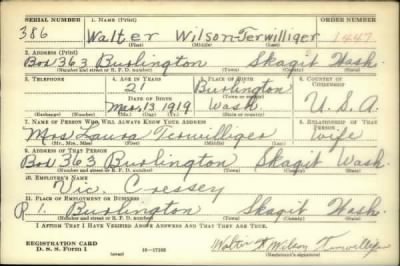 SERIAL NUMBER 1. NAME (Print) ORDER NUMBER
386 Walter Wilson Terwilliger 1447
(First) (Middle) (Last)
2. ADDRESS (Print)
Box 363 Burlington Skagit Wash.
(Number and street or R. F. D. number) (Town) (County) (State)
3. TELEPHONE 4. AGE IN YEARS 5. PLACE OF BIRTH 6. COUNTRY OF CITIZENSHIP
21 Burlington
DATE OF BIRTH (Town or county)
Mar. 13 1919 Wash. U.S.A.
(Exchange) (No.) (Mo.) (Day) (Yr.) (State or country)
7. NAME OF PERSON WHO WILL ALWAYS KNOW YOUR ADDRESS 8. RELATIONSHIP OF THAT PERSON
Mrs Laura Terwilliger Wife
(Mr., Mrs., Miss) (First) (Middle) (Last)
9. ADDRESS OF THAT PERSON
Box 363 Burlington Skagit Wash.
(Number and street or R. F. D. number) (Town) (County) (State)
10. EMPLOYER'S NAME
Vic. Cressey
11. PLACE OF EMPLOYMENT OR BUSINESS
R 1. Burlington Skagit Wash.
(Number and street or R. F. D. number) (Town) (County) (State)
I AFFIRM THAT I HAVE VERIFIED ABOVE ANSWERS AND THAT THEY ARE TRUE.
REGISTRATION CARD
D. S. S. Form 1 (over) Walter Wilson Terwilliger
(Registrant's signature)